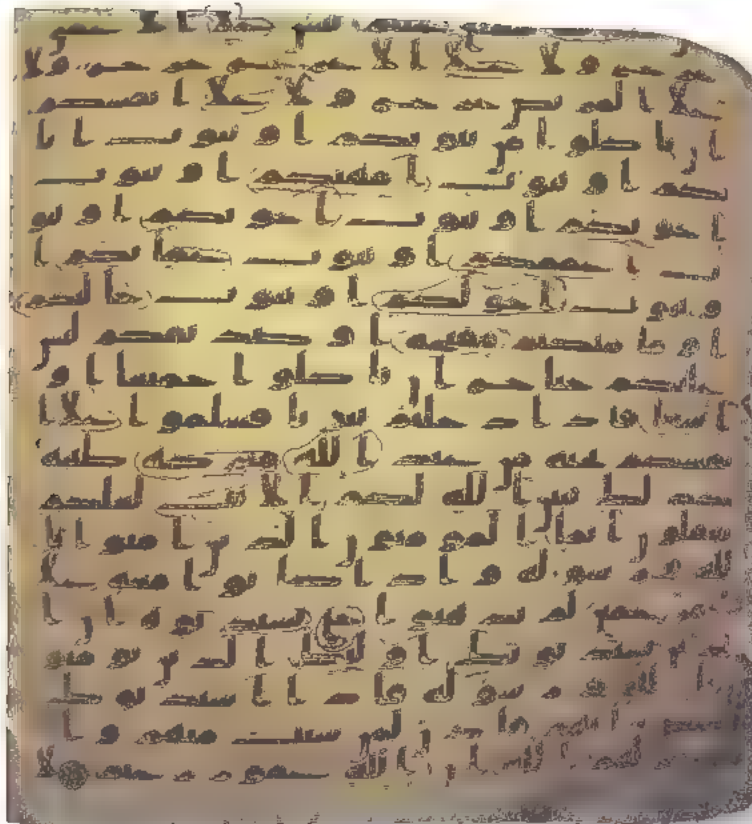 ليس على الاعمى
حرج ولا على الاعرج حرج ولا
على المريض حرج ولا على انفسكم
ان تاكلوا من بيوتكم او بيوت ابا
ئكم او بيوت امهتكم او بيوت
اخونكم او بيوت اخوتكم او بيو
ت اعممكم او بيوت عمتكم ا
و بيوت اخولكم او بيوت خلتكم
او ما ملكتم مفتحه او صديقكم ليس
عليكم جناح ان تاكلوا جميعا او
اشتاتا فاذا دخلتم بيوتا فسلموا على ا
نفسكم تحية من عند الله مبركة طيبة
كذلك يبين الله لكم الايت لعلكم
تعقلون انما المومنون الذين امنوا با
لله ورسوله واذا كانوا معه على
امر جمع لم يذهبوا حتى يستذنوه ان ا
لذين يستذنونك اولئك الذين يومنون
بالله ورسوله فاذا استذنوك
لبعض شانهم فاذن لمن شئت منهم و
استغفر لهم الله ان الله غفور رحيم لا